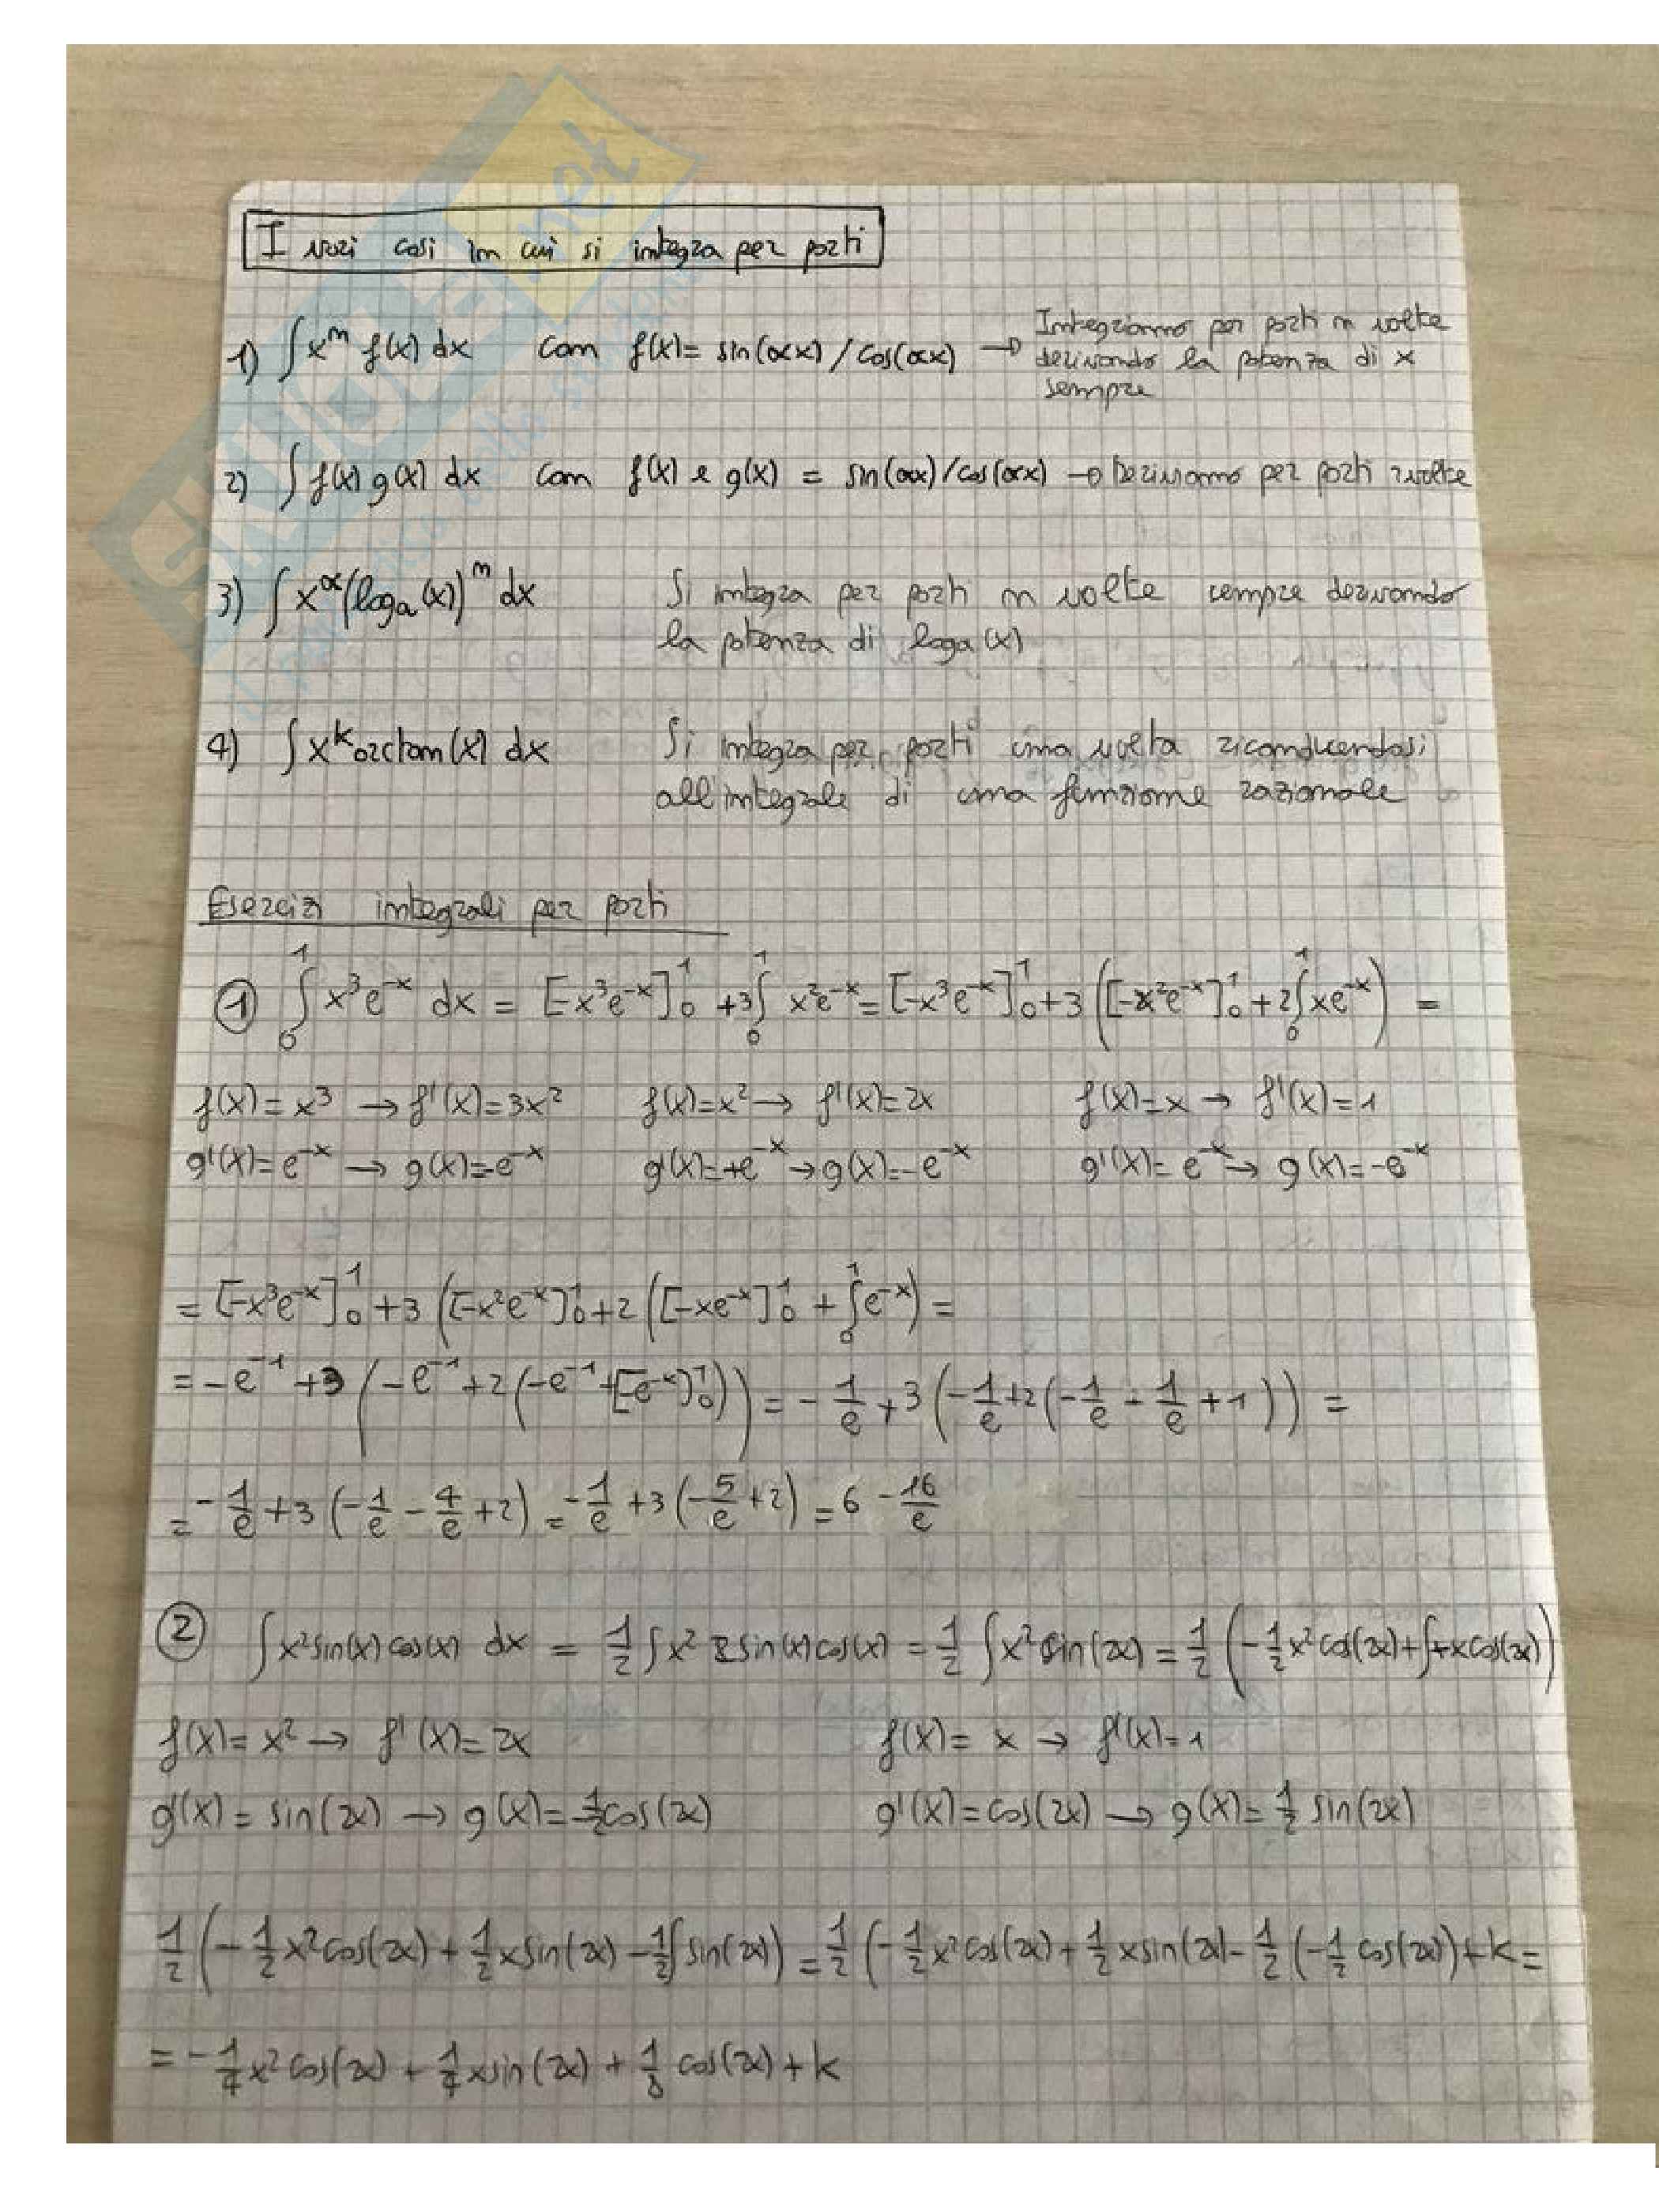 I vari casi in cui si integra per parti
1) ∫ xⁿ f(x) dx con f(x)= sin(αx) / cos(αx) → Integriamo per parti n volte
derivando la potenza di x
sempre
2) ∫ f(x) g(x) dx con f(x) e g(x) = sin(αx)/cos(αx) → Deriviamo per parti 2 volte
3) ∫ x^α (log_a(x))^n dx Si integra per parti n volte sempre derivando
la potenza di log_a(x)
4) ∫ x^k arctan(x) dx Si integra per parti una volta riconducendosi
all'integrale di una funzione razionale
Esercizi integrali per parti
① ∫₀¹ x³e^-x dx = [-x³e^-x]₀¹ +3∫₀¹ x²e^-x = [-x³e^-x]₀¹ +3([-x²e^-x]₀¹ +2∫₀¹ xe^-x) =
f(x)=x³ → f'(x)=3x² f(x)=x² → f'(x)=2x f(x)=x → f'(x)=1
g'(x)=e^-x → g(x)=-e^-x g'(x)=+e^-x → g(x)=-e^-x g'(x)=e^-x → g(x)=-e^-x
= [-x³e^-x]₀¹ +3([-x²e^-x]₀¹ +2([-xe^-x]₀¹ + ∫₀¹ e^-x) =
= -e^-1 +3(-e^-1 +2(-e^-1 +[-e^-x]₀¹)) = -1/e +3(-1/e +2(-1/e - 1/e +1)) =
= -1/e +3(-1/e - 4/e +2) = -1/e +3(-5/e +2) = 6 - 16/e
② ∫x²sin(x)cos(x) dx = 1/2 ∫x² 2sin(x)cos(x) = 1/2 ∫x² sin(2x) = 1/2 (-1/2 x²cos(2x)+∫+xcos(2x))
f(x)= x² → f'(x)=2x f(x)= x → f'(x)=1
g'(x)= sin(2x) → g(x)=-1/2cos(2x) g'(x)=cos(2x) → g(x)=1/2 sin(2x)
1/2 (-1/2 x²cos(2x) + 1/2 xsin(2x) -1/2∫sin(2x)) = 1/2 (-1/2 x²cos(2x) + 1/2 xsin(2x) - 1/2 (-1/2 cos(2x)) + k =
= -1/4 x² cos(2x) + 1/4 xsin(2x) + 1/8 cos(2x) + k